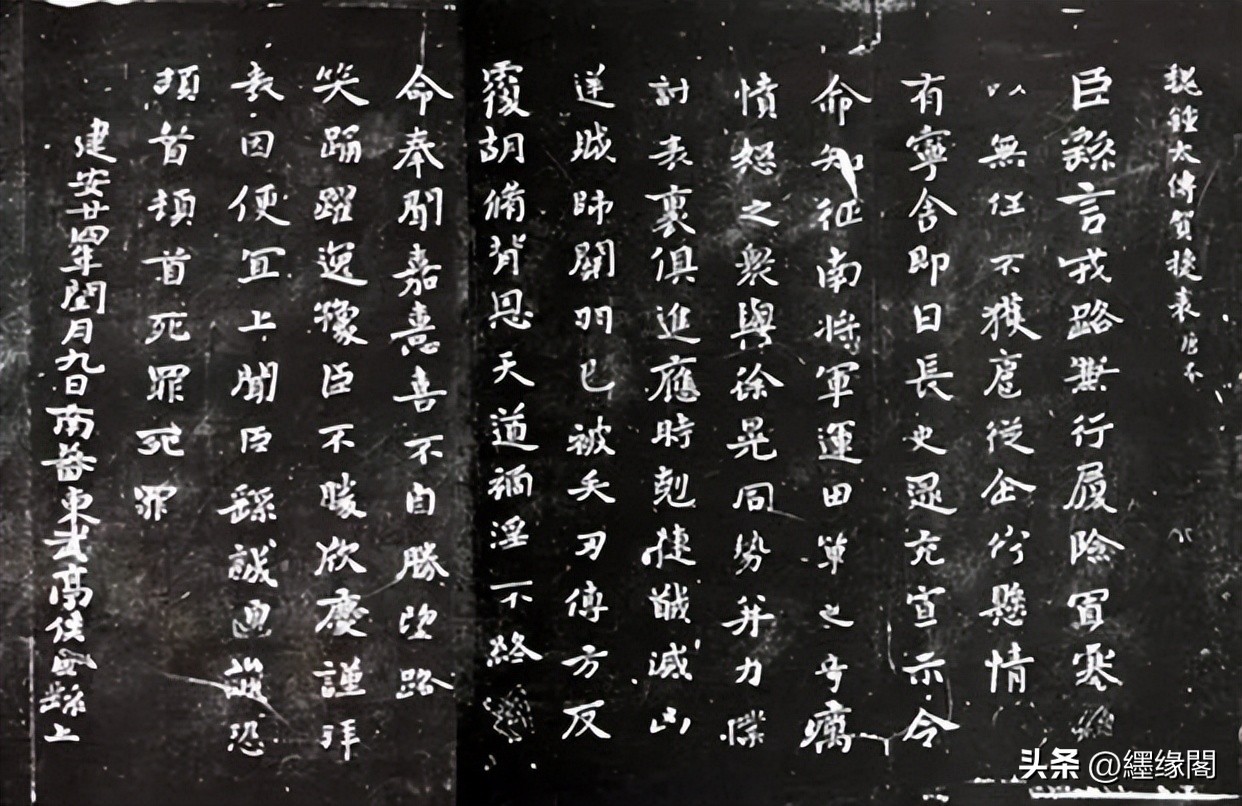 魏鍾太傅賀捷表
臣繇言戎路兼行履險冒寒臣
以無任不獲扈從企佇懸情
有寧舍即日長史逯充宣示令
命知征南將軍運田單之奇厲
憤怒之衆與徐晃同勢并力撲
討表裏俱進應時剋捷馘滅凶
逆賊帥關羽已被矢刃傅方反
覆胡脩背恩天道禍淫不終
命奉聞嘉憙喜不自勝望路
載笑踊躍逸豫臣不勝欣慶謹拜
表因便宜上聞臣繇誠惶誠恐
頓首頓首死罪死罪
建安廿四年閏月九日南蕃東武亭侯臣繇上
头条 @纆缘閣